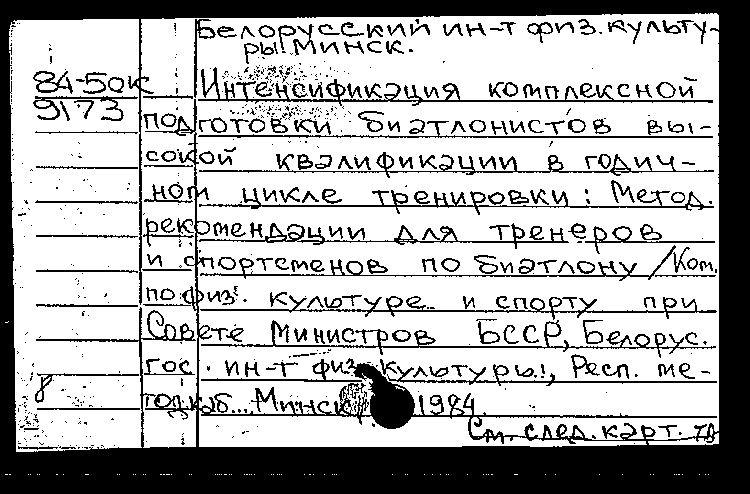 Белорусский ин-т физ. культу-
ры. Минск.
84-50к
9173
Интенсификация комплексной
подготовки биатлонистов вы-
сокой квалификации в годич-
ном цикле тренировки: Метод.
рекомендации для тренеров
и спортсменов по биатлону /Ком.
по физ. культуре и спорту при
Совете Министров БССР, Белорус.
гос. ин-т физ. культуры, Респ. ме-
тод каб... Минск, 1984.
См. след. карт.